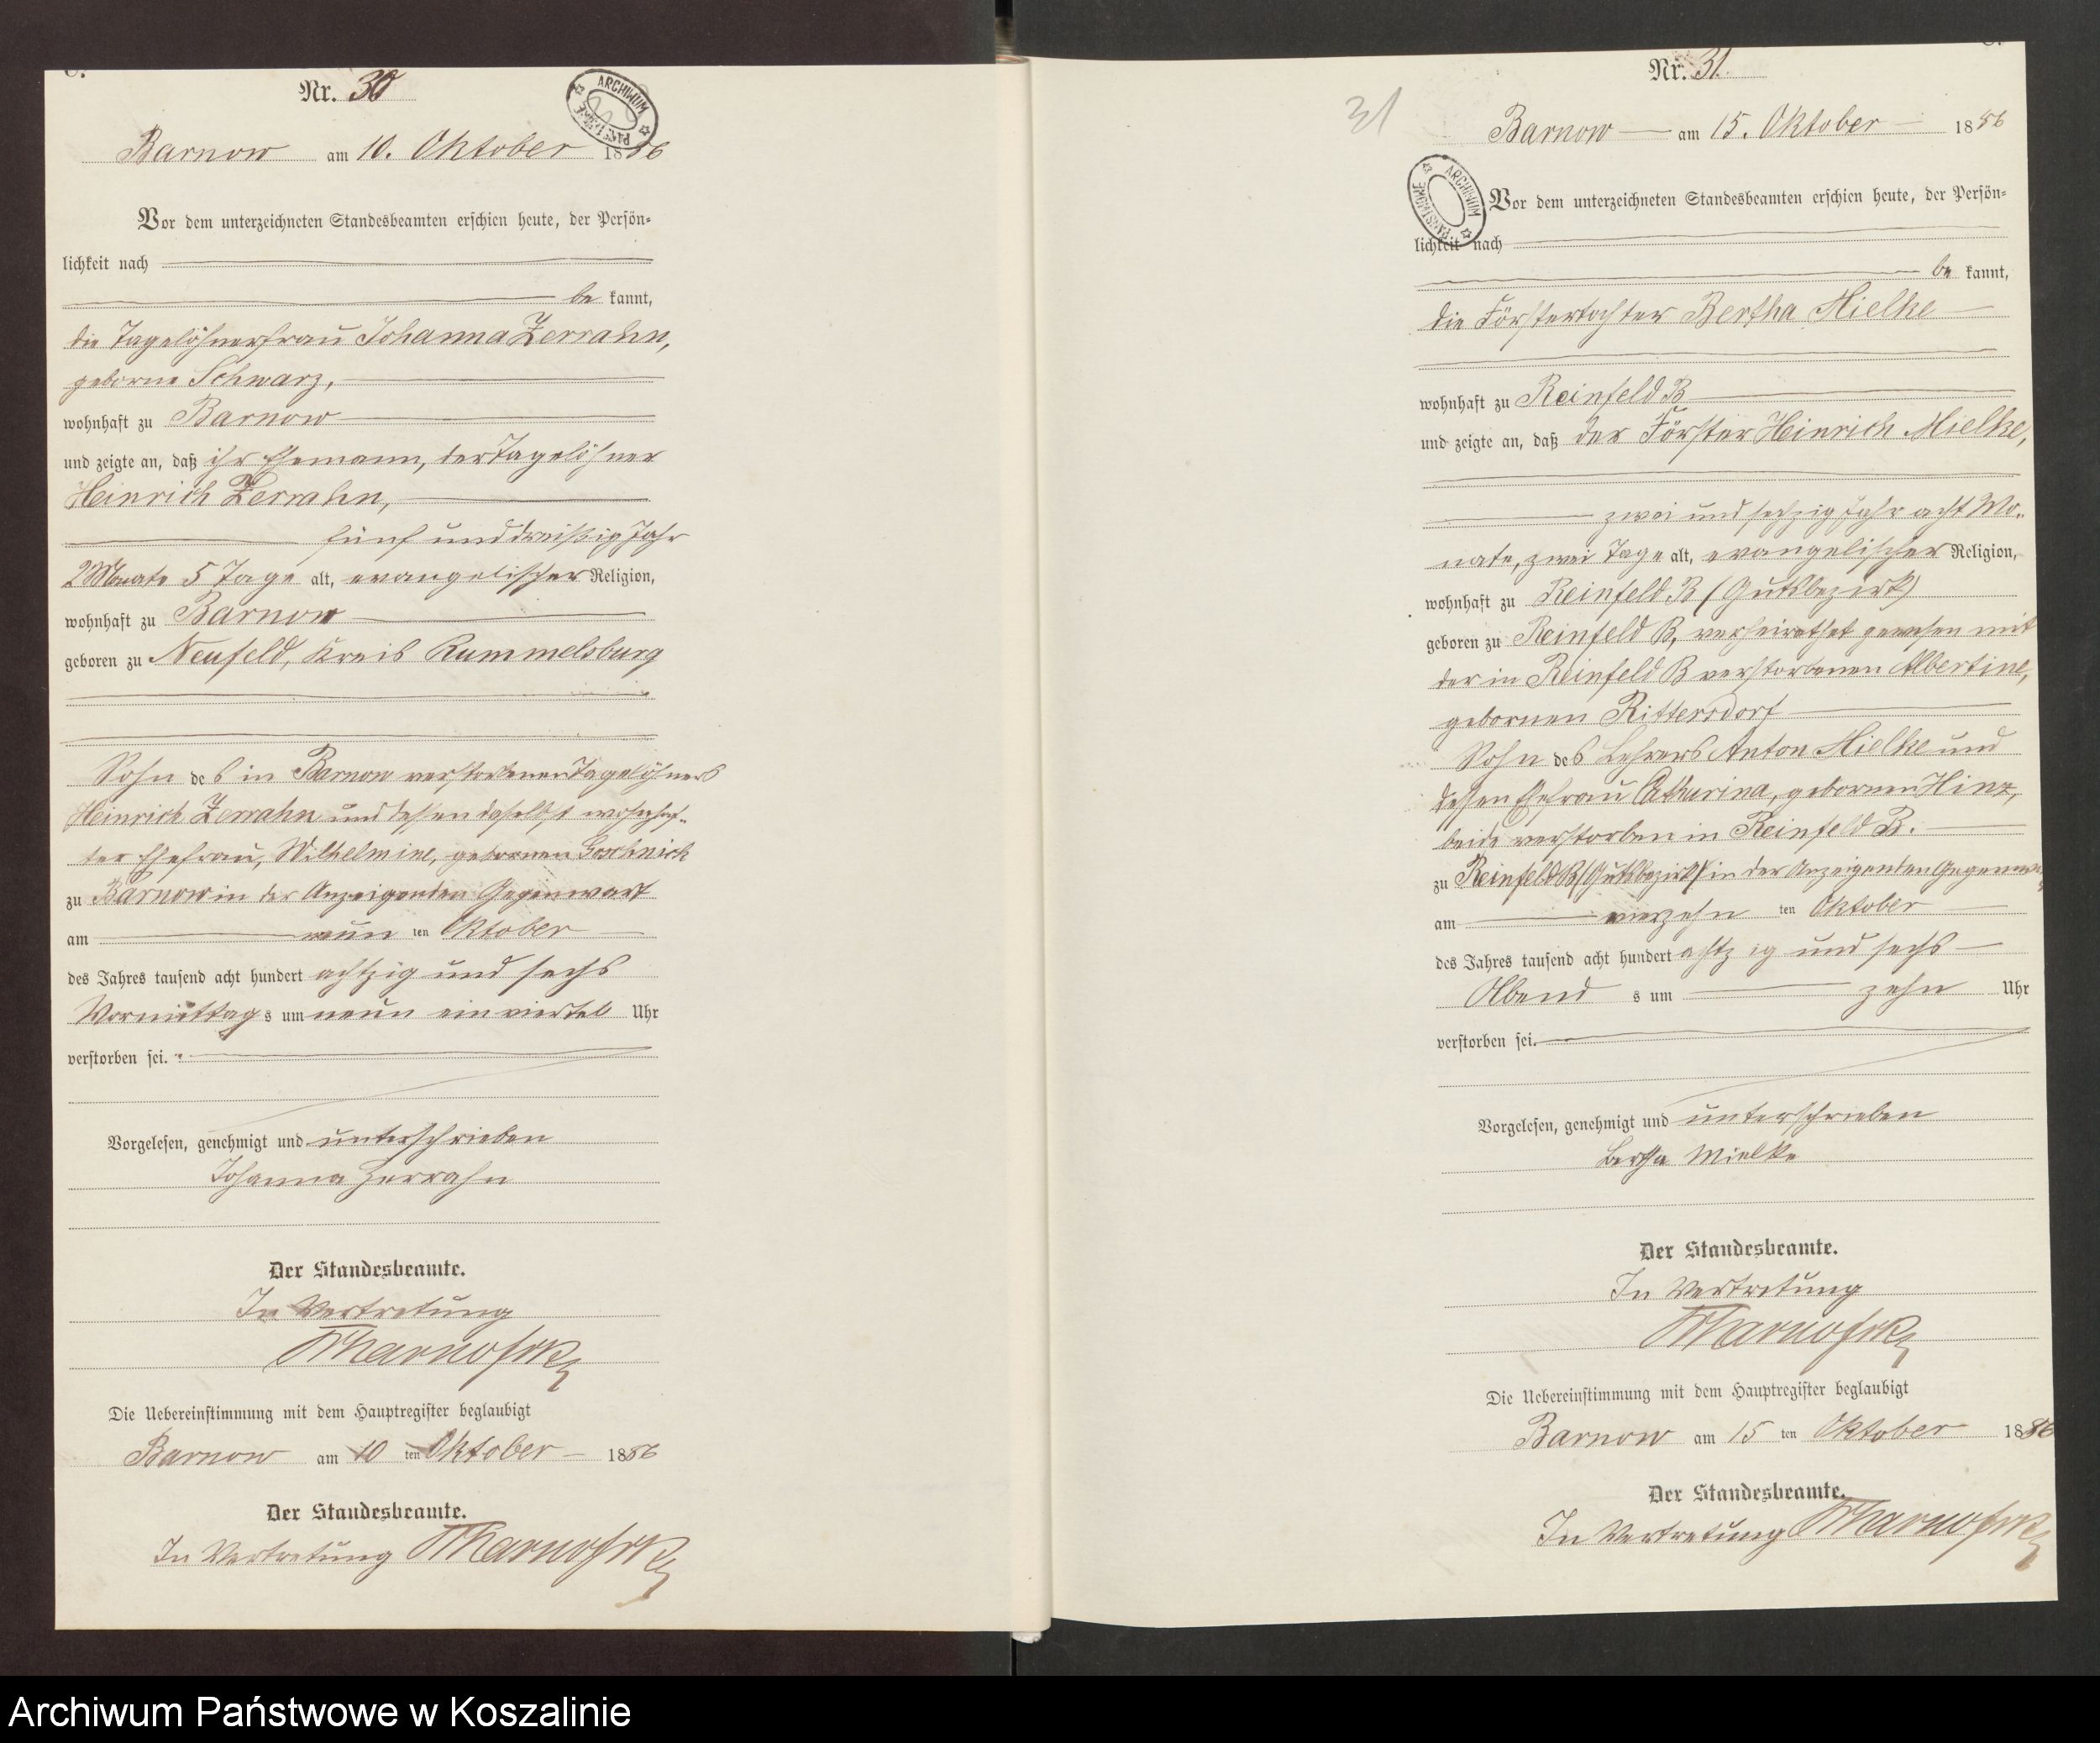 C.
Nr. 30
ARCHIWUM PAŃSTWOWE
Barnow am 10. Oktober 1886
Vor dem unterzeichneten Standesbeamten erschien heute, der Persön-
lichkeit nach
be kannt,
die Tagelöhnerfrau Johanna Zerrahn,
geborne Schwarz,
wohnhaft zu Barnow
und zeigte an, daß ihr Ehemann, der Tagelöhner
Heinrich Zerrahn,
fünf und dreißig Jahr
2 Monate 5 Tage alt, evangelischer Religion,
wohnhaft zu Barnow
geboren zu Neufeld, Kreis Rummelsburg
Sohn des in Barnow verstorbenen Tagelöhners
Heinrich Zerrahn und dessen daselbst wohnhaf-
ter Ehefrau, Wilhelmine, gebornen
zu Barnow in der Anzeigenden Gegenwart
am neun ten Oktober
des Jahres tausend acht hundert achtzig und sechs
Vormittags um neun ein viertel Uhr
verstorben sei.
Vorgelesen, genehmigt und unterschrieben
Johanna Zerrahn
Der Standesbeamte.
In Vertretung
Die Uebereinstimmung mit dem Hauptregister beglaubigt
Barnow am 10 ten Oktober 1886
Der Standesbeamte.
In Vertretung
C.
Nr. 31.
31
Barnow am 15. Oktober 1886
ARCHIWUM PAŃSTWOWE
Vor dem unterzeichneten Standesbeamten erschien heute, der Persön-
lichkeit nach
be kannt,
die Förstertochter Bertha Mielke
wohnhaft zu Reinfeld B
und zeigte an, daß der Förster Heinrich Mielke,
zwei und sechzig Jahr acht Mo-
nate, zwei Tage alt, evangelischer Religion,
wohnhaft zu Reinfeld B (Gutsbezirk)
geboren zu Reinfeld B, verheirathet gewesen mit
der in Reinfeld B verstorbenen Albertine,
gebornen Rittersdorf
Sohn des Lehrers Anton Mielke und
dessen Ehefrau Catharina, gebornen Hinz,
beide verstorben in Reinfeld B.
zu Reinfeld B (Gutsbezirk) in der Anzeigenden Gegenwart
am vierzehn ten Oktober
des Jahres tausend acht hundert achtzig und sechs
Abend s um zehn Uhr
verstorben sei.
Vorgelesen, genehmigt und unterschrieben
Bertha Mielke
Der Standesbeamte.
In Vertretung
Die Uebereinstimmung mit dem Hauptregister beglaubigt
Barnow am 15 ten Oktober 1886
Der Standesbeamte.
In Vertretung
Archiwum Państwowe w Koszalinie